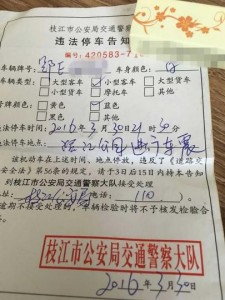 枝江市公安局交通警察大
违法停车告知
编号:420583-7
车辆牌号: 鄂E 车身颜色: 白
车辆类型: 大型客车 小型客车 大型货车
小型货车 摩托车 其他
号牌颜色: 黄色 蓝色 黑色
白色 其他
违法停车时间: 2016年3月30日21时30分
违法停车地点:
该机动车在上述时间、地点停放,违反了《道路交
安全法》第56条的规定,请于3日后15日内持本告知
到枝江市公安局交通警察大队接受处理
电话: (110)
逾期不接受处理的,车辆检验时将不予核发检验合
枝江市公安局交通警察大队
2016年3月30日